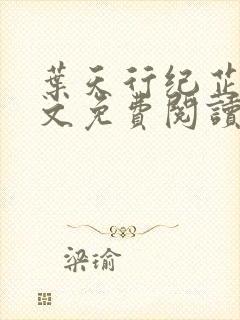 葉天行纪芷
文免費閱讀
梁瑜